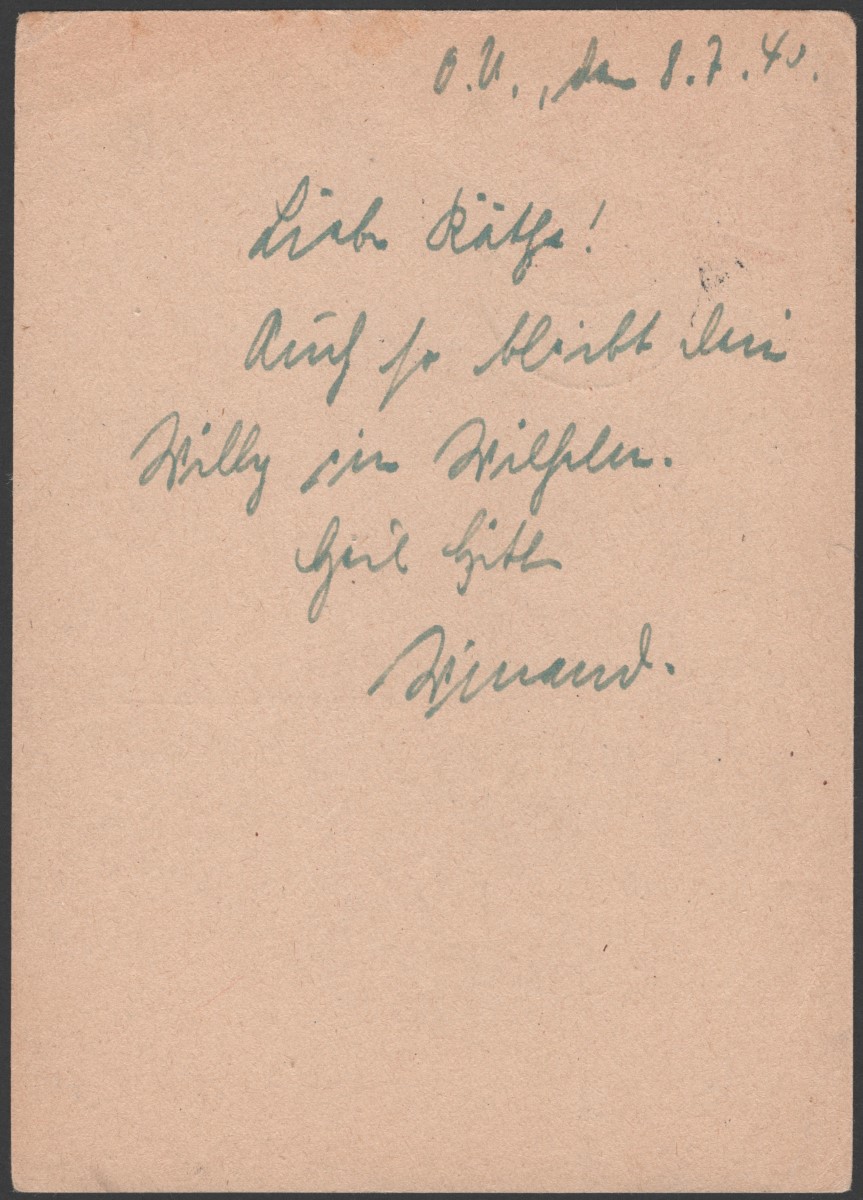 O.U., den 8.7.40.
Liebe Käthe!
Auch so bleibt dein
Willy ein Wilhelm.
Heil Hitl
Winand.